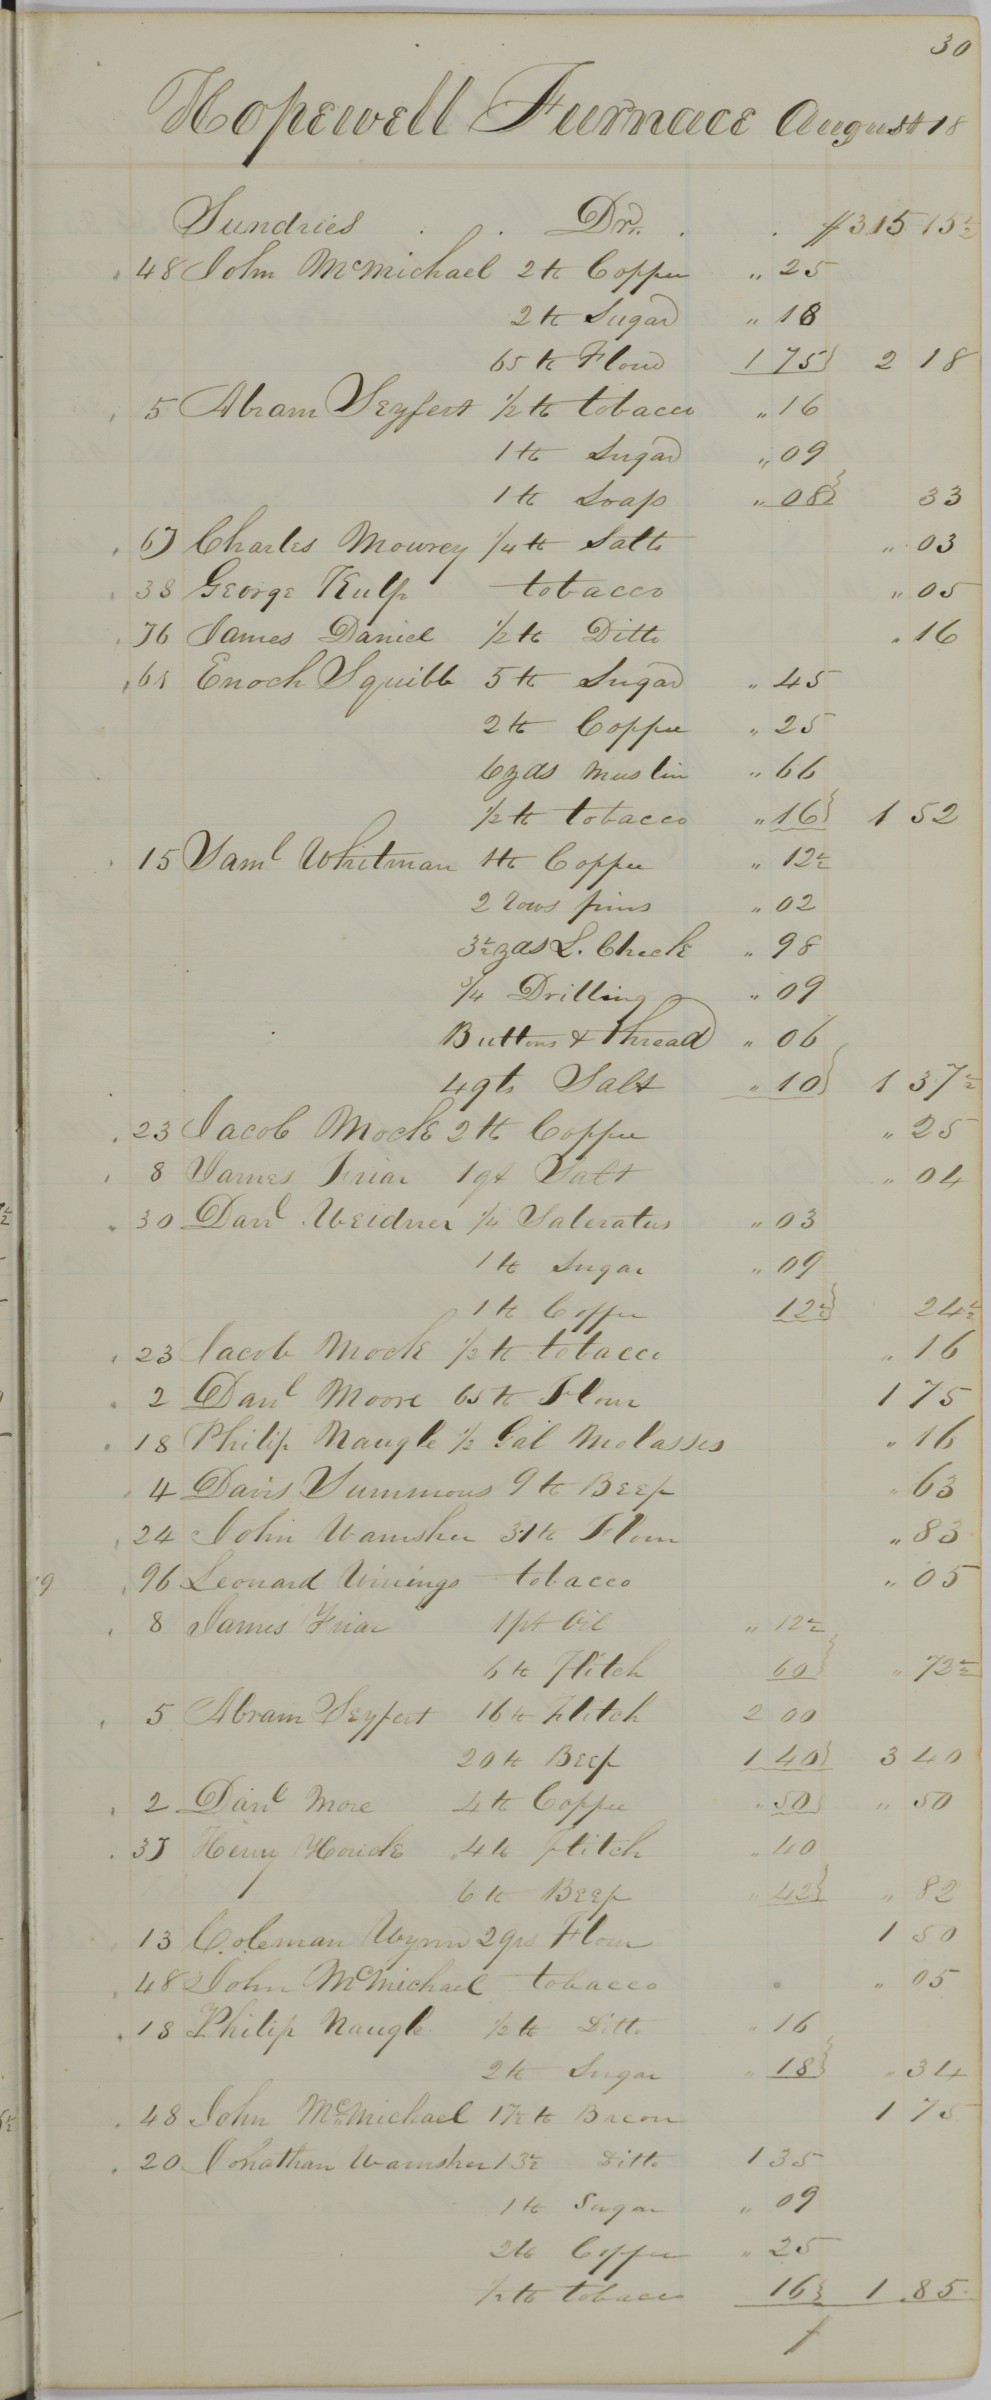 30
Hopewell Furnace August 18
Sundries . . Dr. . . $315 15½
48 John McMichael 2 ℔ Coffee " 25
2 ℔ Sugar " 18
65 ℔ Flour 1 75} 2 18
5 Abram Seyfert ½ ℔ tobacco " 16
1 ℔ Sugar " 09
1 ℔ Soap " 08} 33
67 Charles Mowrey ¼ ℔ Salts " 03
38 George Kulp tobacco " 05
76 James Daniel ½ ℔ Ditto " 16
Enoch Squibb 5 ℔ Sugar " 45
2 ℔ Coffee " 25
6 yds Muslin " 66
½ ℔ tobacco " 16} 1 52
15 Saml Whitman 1 ℔ Coffee " 12½
2 rows pins " 02
3½ yds L. Check " 98
¾ Drilling " 09
Buttons & thread " 06
4 qts Salt " 10} 1 37½
23 Jacob Mock 2 ℔ Coffee " 25
8 James Friar 1 qt Salt " 04
30 Danl Weidner ¼ Saleratus " 03
1 ℔ Sugar " 09
1 ℔ Coffee 12½} 24½
23 Jacob Mock ½ ℔ tobacco " 16
2 Danl Moore 65 ℔ Flour 1 75
18 Philip Naugle ½ Gal Molasses " 16
4 Davis Summons 9 ℔ Beef " 63
24 John Wamsher 31 ℔ Flour " 83
9
96 Leonard Vinings tobacco " 05
8 James Friar 1 pt Oil " 12½
6 ℔ Flitch 60} " 72½
5 Abram Seyfert 16 ℔ Flitch 2 00
20 ℔ Beef 1 40} 3 40
2 Danl More 4 ℔ Coffee " 50} " 50
37 Henry Houck 4 ℔ Flitch " 40
6 ℔ Beef " 42} " 82
13 Coleman Wynn 2 qrs Flour 1 50
48 John McMichael tobacco " 05
18 Philip Naugle ½ ℔ Ditto " 16
2 ℔ Sugar " 18} " 34
48 John McMichael 17½ ℔ Bacon 1 75
20 Jonathan Wamsher 13½ Ditto 1 35
1 ℔ Sugar " 09
2 ℔ Coffee " 25
½ ℔ tobacco 16} 1 85